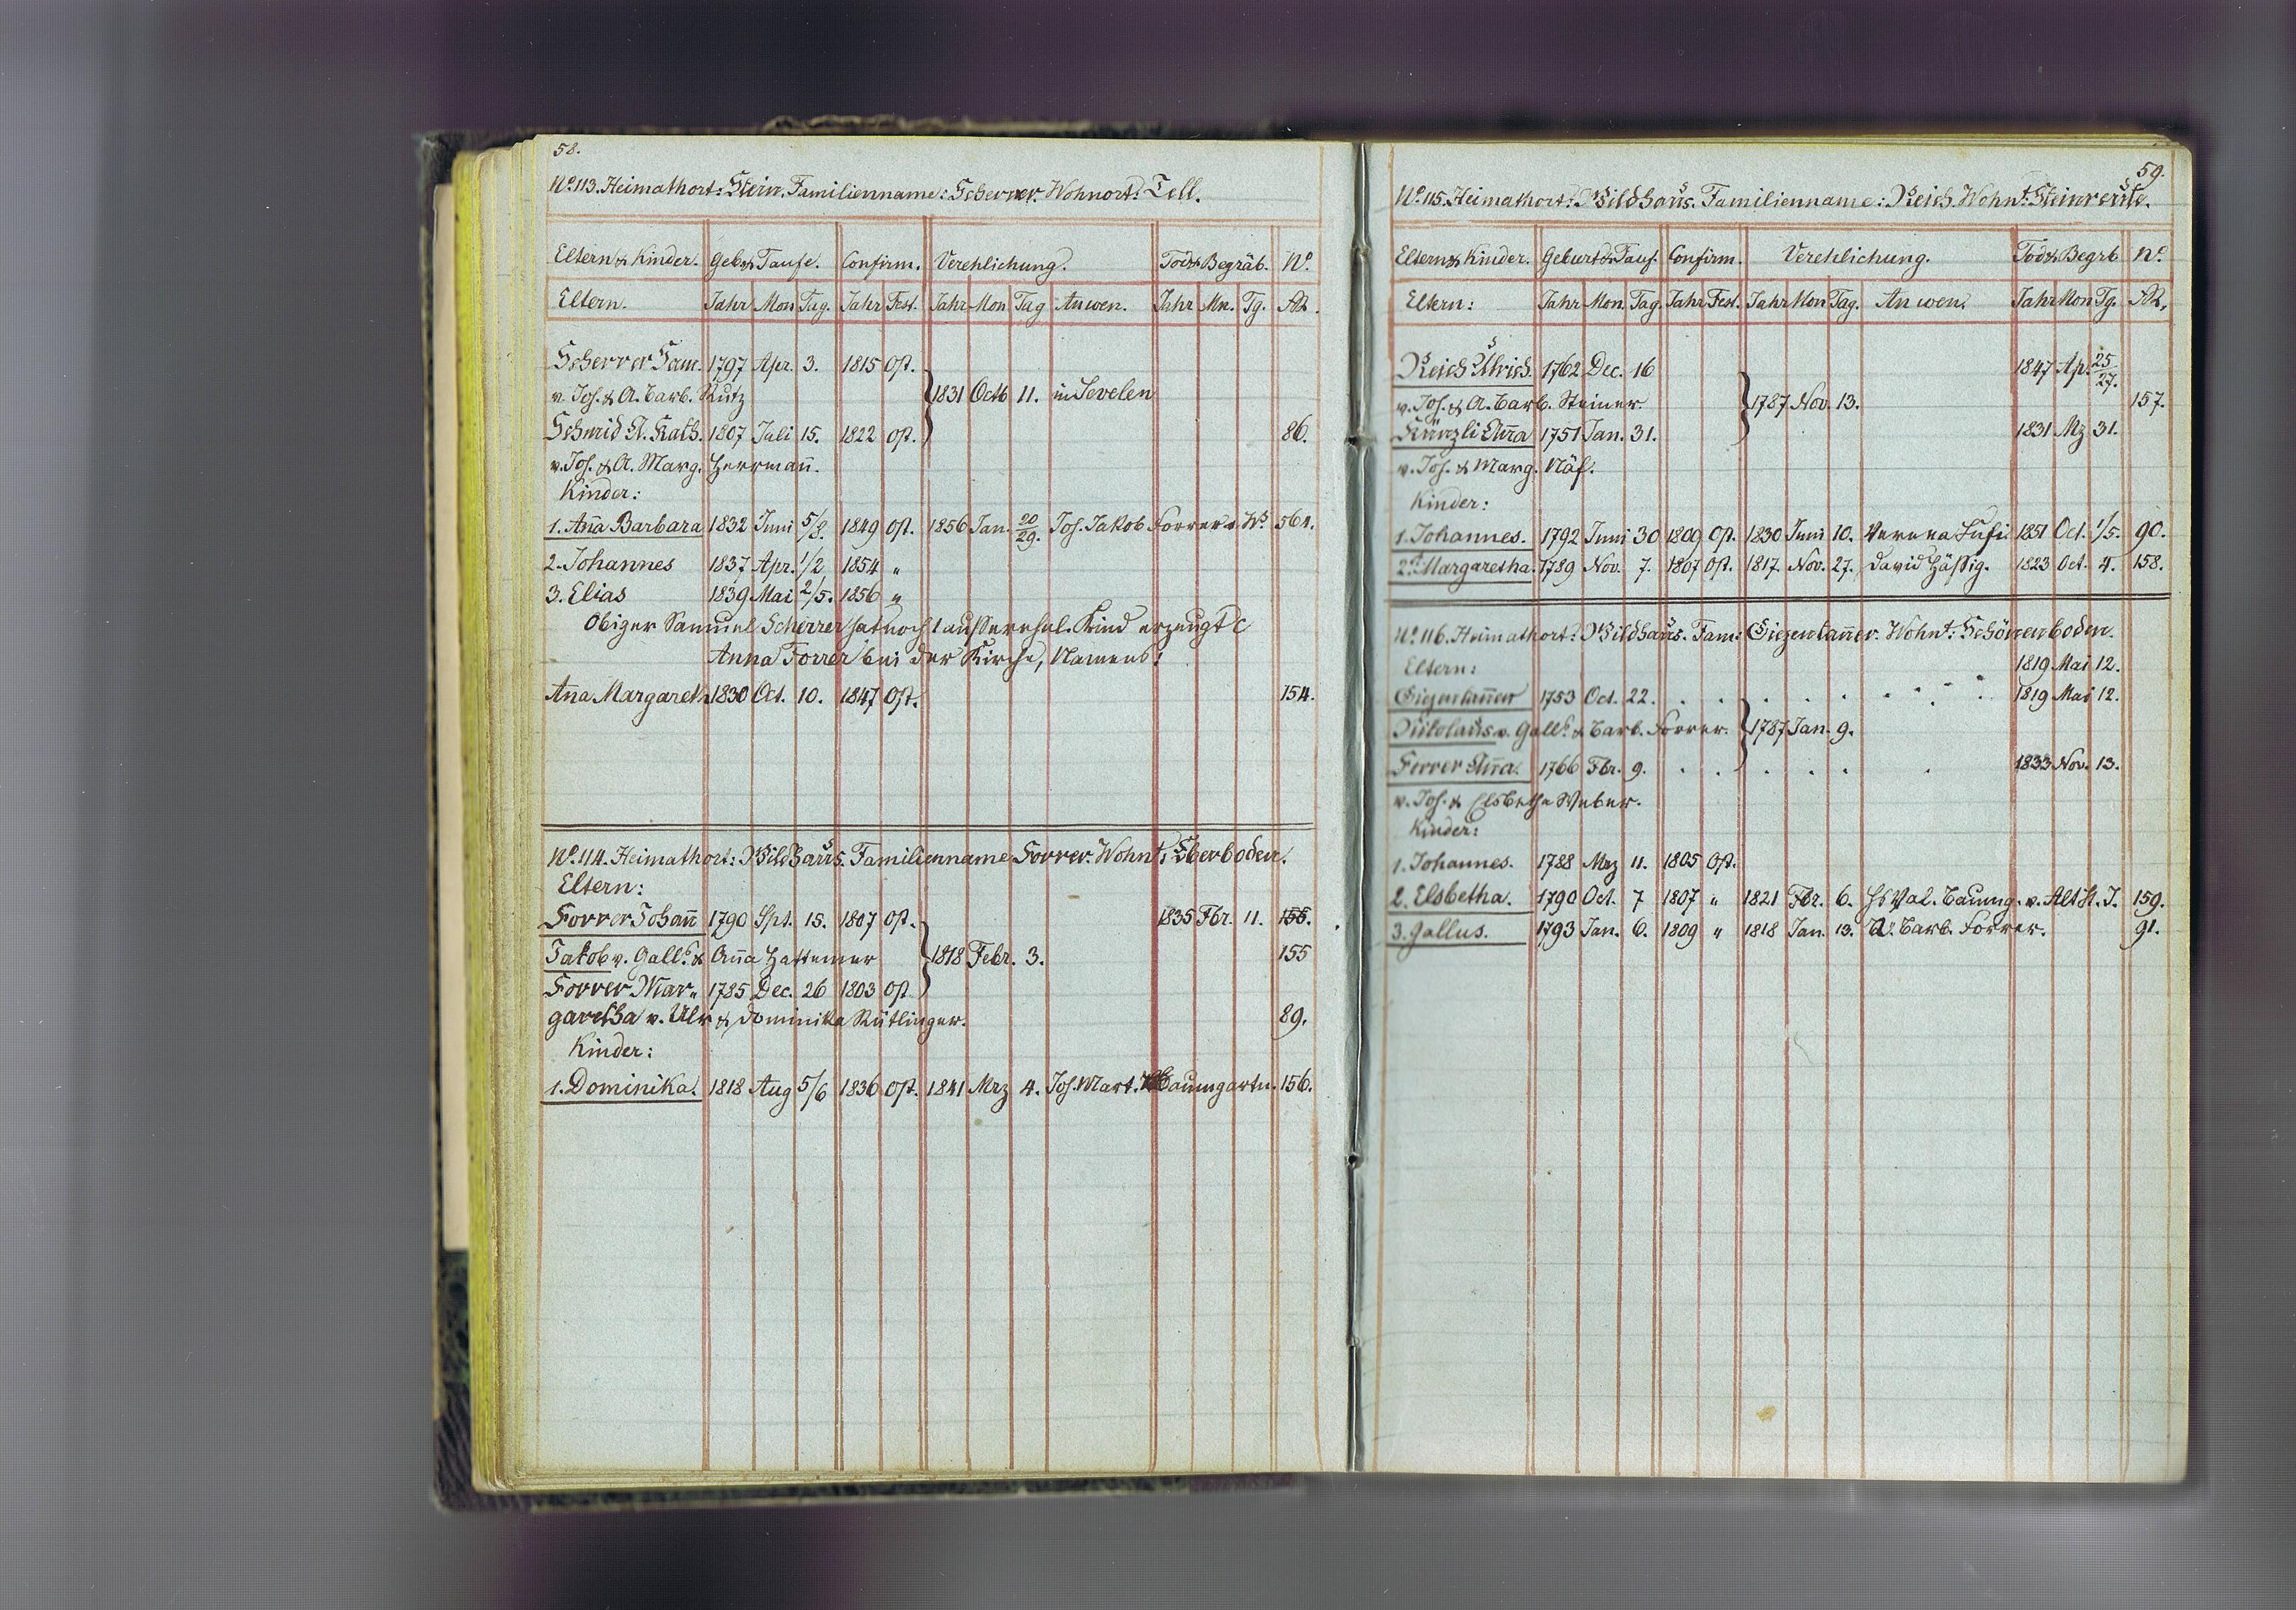 58.
No. 113. Heimathort: Stein. Familienname: Scherrer. Wohnort: Tell.
Eltern & Kinder. Geb. & Taufe. Confirm. Verehlichung. Tod & Begräb. No.
Eltern. Jahr Mon Tag. Jahr Fest. Jahr Mon Tag An wen. Jahr Mn. Tg.
Scherrer Sam. 1797 Apr. 3. 1815 Ost.
v. Joh. & A. Barb. Kutz 1831 Octb 11. in Sevelen
Schmid A. Kath. 1807 Juli 15. 1822 Ost. 86.
v. Joh. & A. Marg. Herrmann̄.
Kinder:
1. Ana Barbara 1832 Juni 5/8. 1849 Ost. 1856 Jan. 20/29. Joh. Jakob Forrer v. Ws. 561.
2. Johannes 1837 Apr. 1/2 1854 "
3. Elias 1839 Mai 2/5. 1856 "
Obiger Samuel Scherrer hat noch 1 ausserehel. Kind erzeugt c
Anna Forrer bei der Kirche, Namens:
Ana Margareth 1830 Oct. 10. 1847 Ost. 154.
No. 114. Heimathort: Wildhaus. Familienname Forrer. Wohnt: Oberboden.
Eltern:
Forrer Johan̄ 1790 Spt. 15. 1807 Ost. 1835 Fbr. 11. 155.
Jakob v. Galls. & Ana Hattemer 1818 Febr. 3. 155
Forrer Mar„ 1785 Dec. 26 1803 Ost.
garetha v. Ulr & Dominika Rütlinger. 89.
Kinder:
1. Dominika. 1818 Aug 5/6 1836 Ost. 1841 Mrz 4. Joh. Mart. Baumgartn. 156.
59.
No. 115. Heimathort: Wildhaus. Familienname: Reich. Wohnt: Steinreüte.
Eltern & Kinder. Geburt & Tauf. Confirm. Verehlichung. Tod & Begrb No.
Eltern: Jahr Mon. Tag. Jahr Fest. Jahr Mon Tag. An wen. Jahr Mon Tg.
Reich Ulrich. 1762 Dec. 16 1847 Ap. 25/27.
v. Joh. & A. Barb. Steiner. 1787 Nov. 13. 157.
Künzli Ana 1751 Jan. 31. 1831 Mz 31.
v. Joh. & Marg. Näf.
Kinder:
1. Johannes. 1792 Juni 30 1809 Ost. 1830 Juni 10. Verena Lusi 1851 Oct. 1/5. 90.
2. Margaretha. 1789 Nov. 7. 1807 Ost. 1817. Nov. 27. David Hässig. 1823 Oct. 4. 158.
No. 116. Heimathort: Wildhaus. Fam: Giezentanner. Wohnt: Schönenboden.
Eltern: 1819 Mai 12.
Giezentanner 1753 Oct. 22. 1819 Mai 12.
Nikolaus v. Galls. & Barb. Forrer. 1787 Jan. 9.
Forrer Ana. 1766 Fbr. 9. 1833 Nov. 13.
v. Joh. & Elsbetha Weber.
Kinder:
1. Johannes. 1788 Mrz 11. 1805 Ost.
2. Elsbetha. 1790 Oct. 7 1807 " 1821 Fbr. 6. Hs Val. Baumg. v. Alt St. J. 159.
3. Gallus. 1793 Jan. 6. 1809 " 1818 Jan. 13. A. Barb. Forrer. 91.